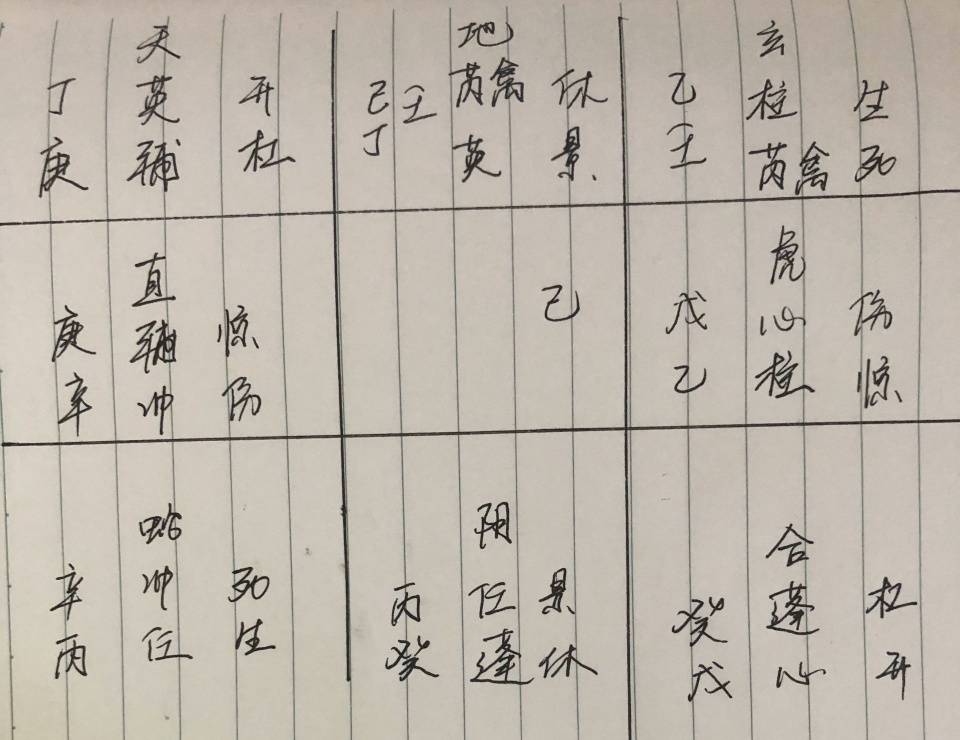 天
丁 英 开
庚 辅 杜
地
己壬 芮禽 休
丁 英 景
玄
乙 柱 生
壬 芮禽 死
直
庚 辅 惊
辛 冲 伤
己
虎
戊 心 伤
乙 柱 惊
蛇
辛 冲 死
丙 任 生
阴
丙 任 景
癸 蓬 休
合
癸 蓬 杜
戊 心 开